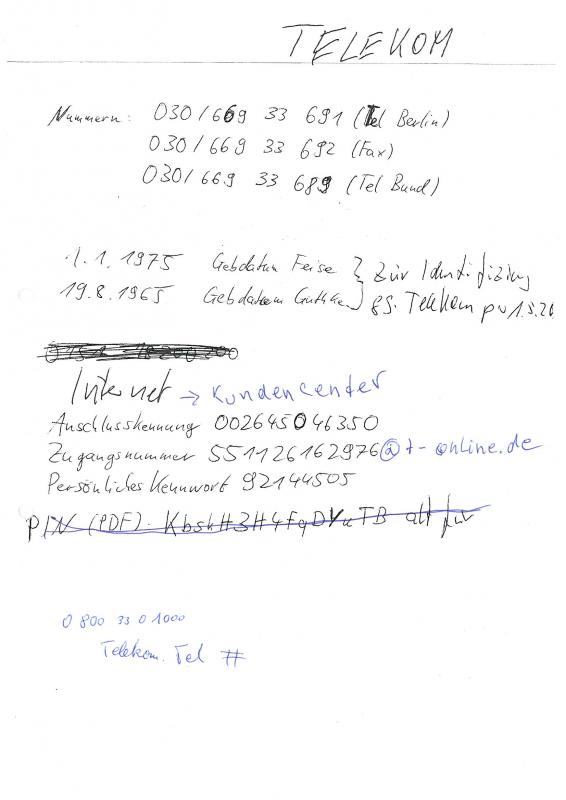 TELEKOM
Nummern: 030/669 33 691 (Tel Berlin)
030/669 33 692 (Fax)
030/669 33 689 (Tel Bund)
1.1.1975 Gebdatum Feise } zur Identifizierung
19.8.1965 Gebdatum } gg. Telekom
Internet → Kundencenter
Anschlusskennung 002645046350
Zugangsnummer 551126162976@t-online.de
Persönliches Kennwort 92144505
PIN (PDF)
0 800 33 0 1000
Telekom. Tel #